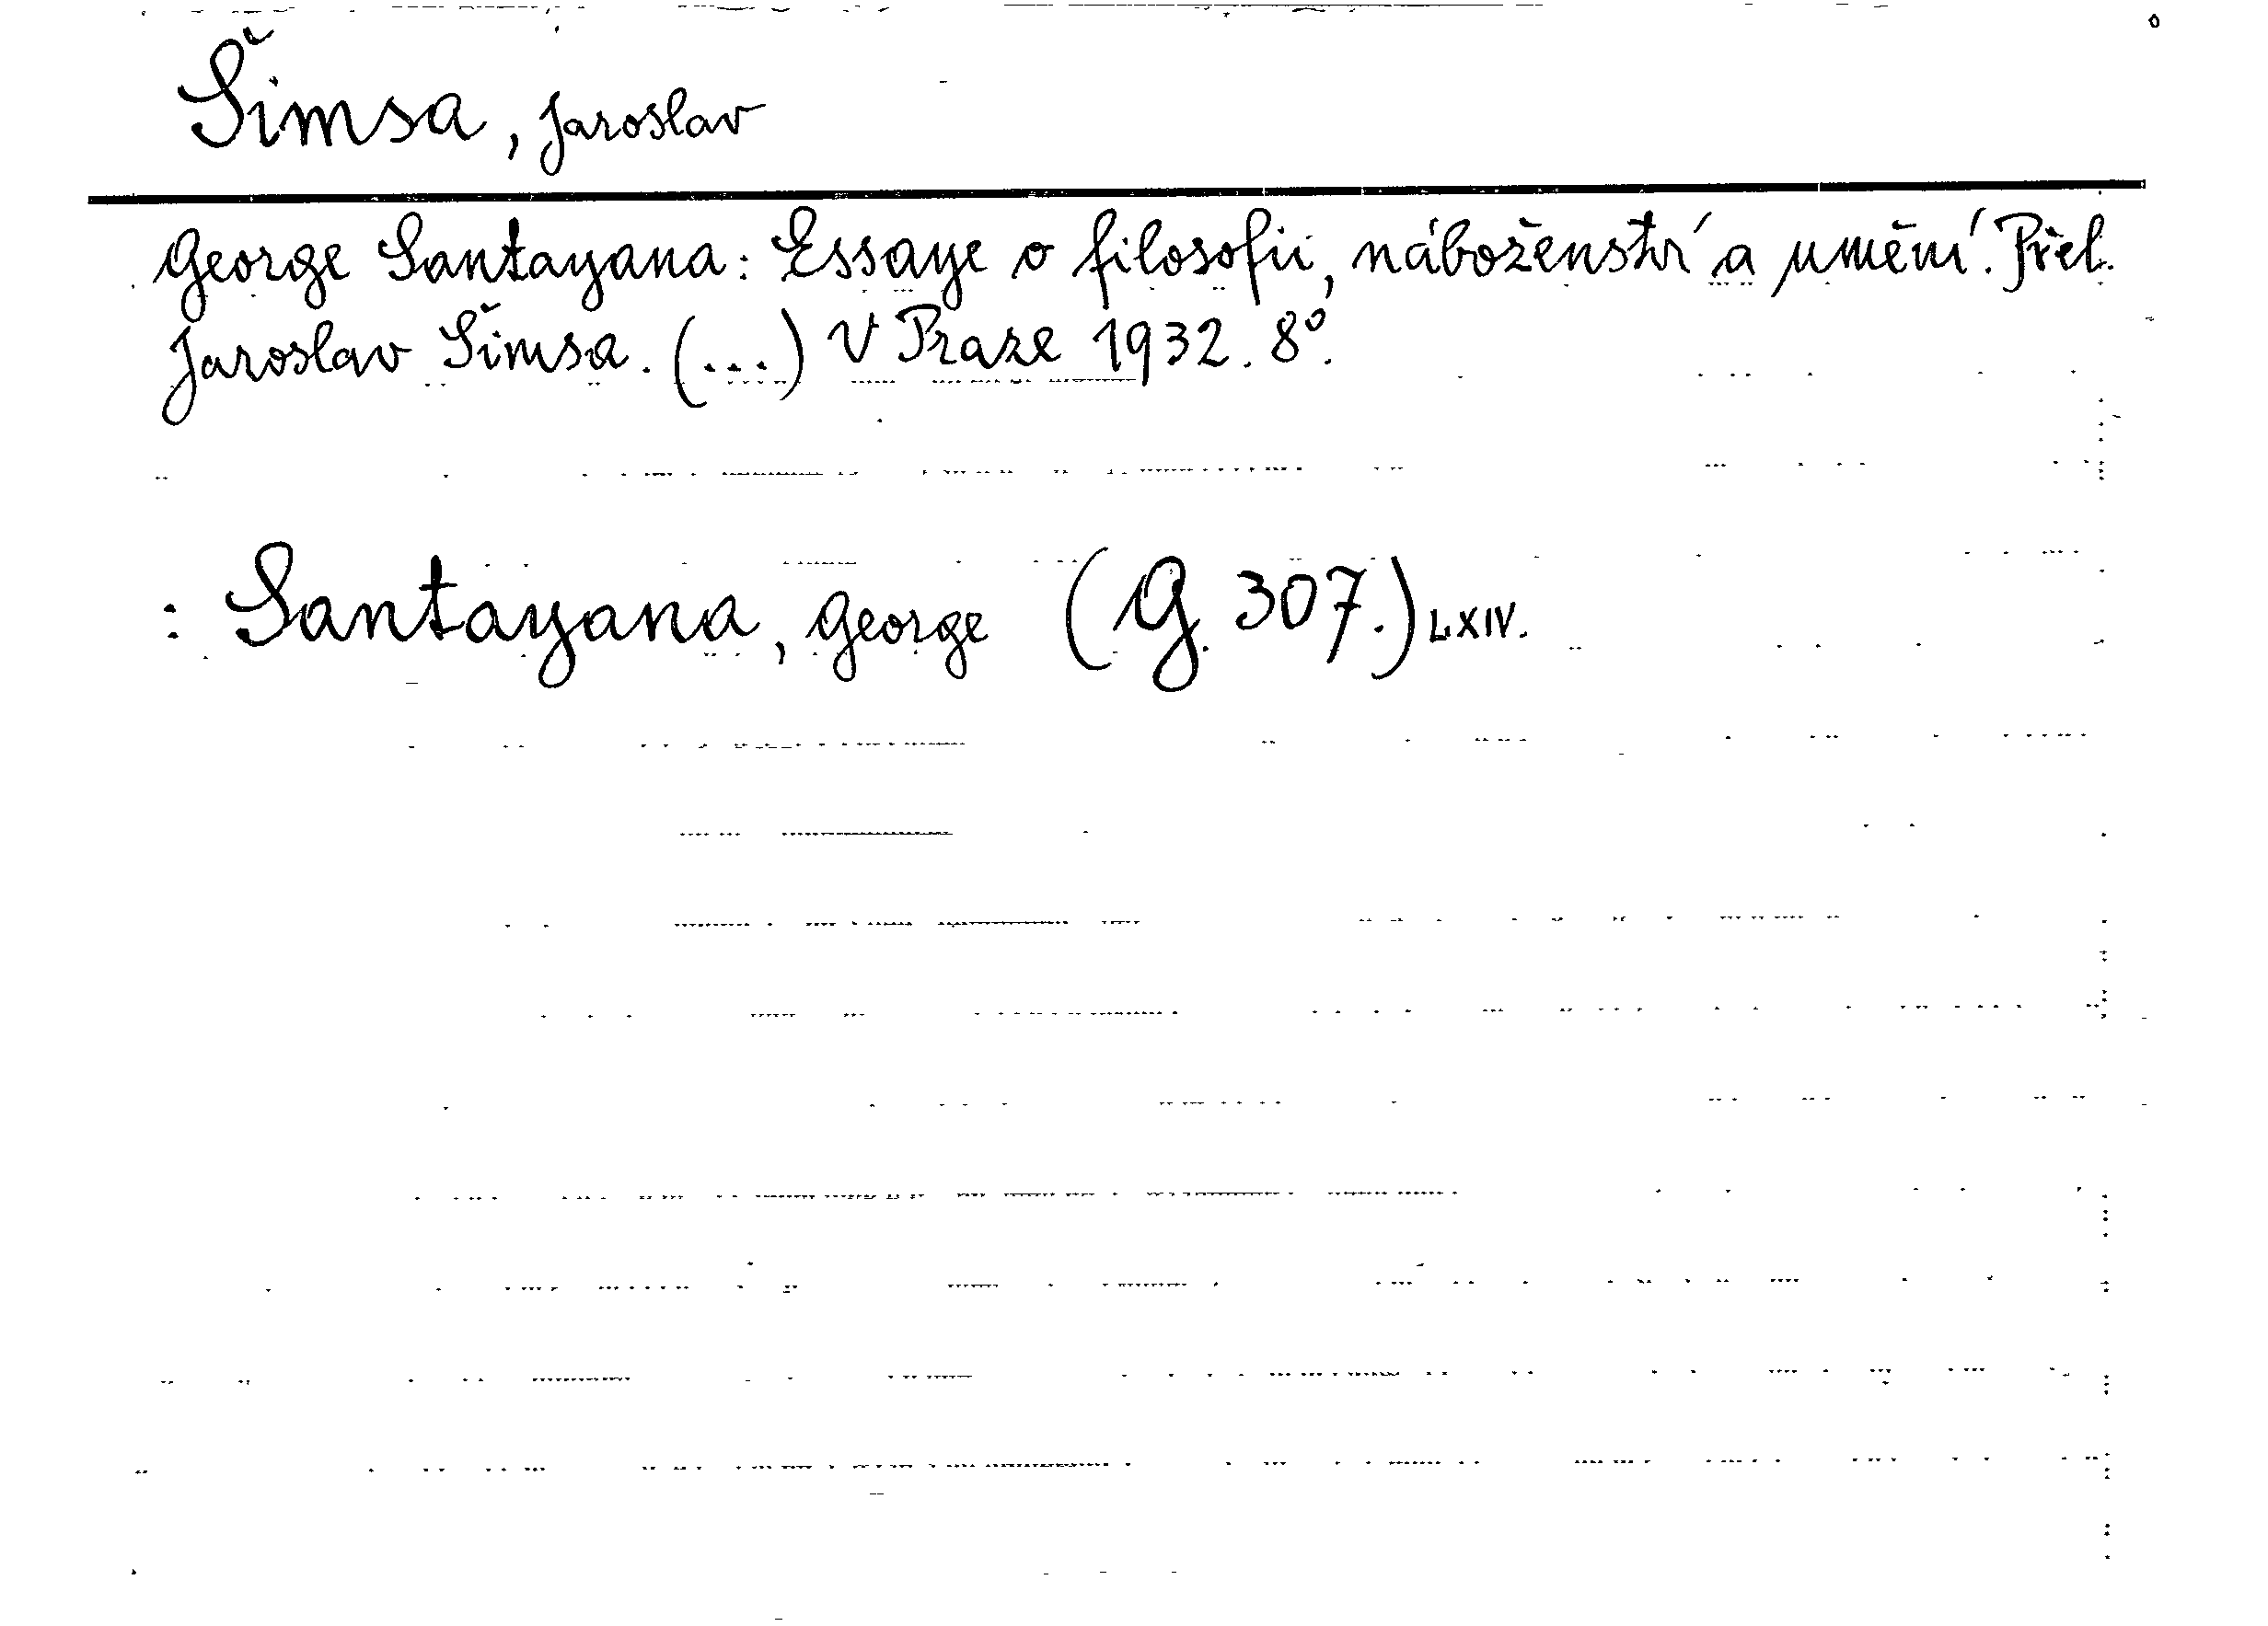 Šimsa, Jaroslav
George Santayana: Essaye o filosofii, náboženství a umění. Přel.
Jaroslav Šimsa. (...) V Praze 1932. 8°.
: Santayana, George (G. 307.) LXIV.